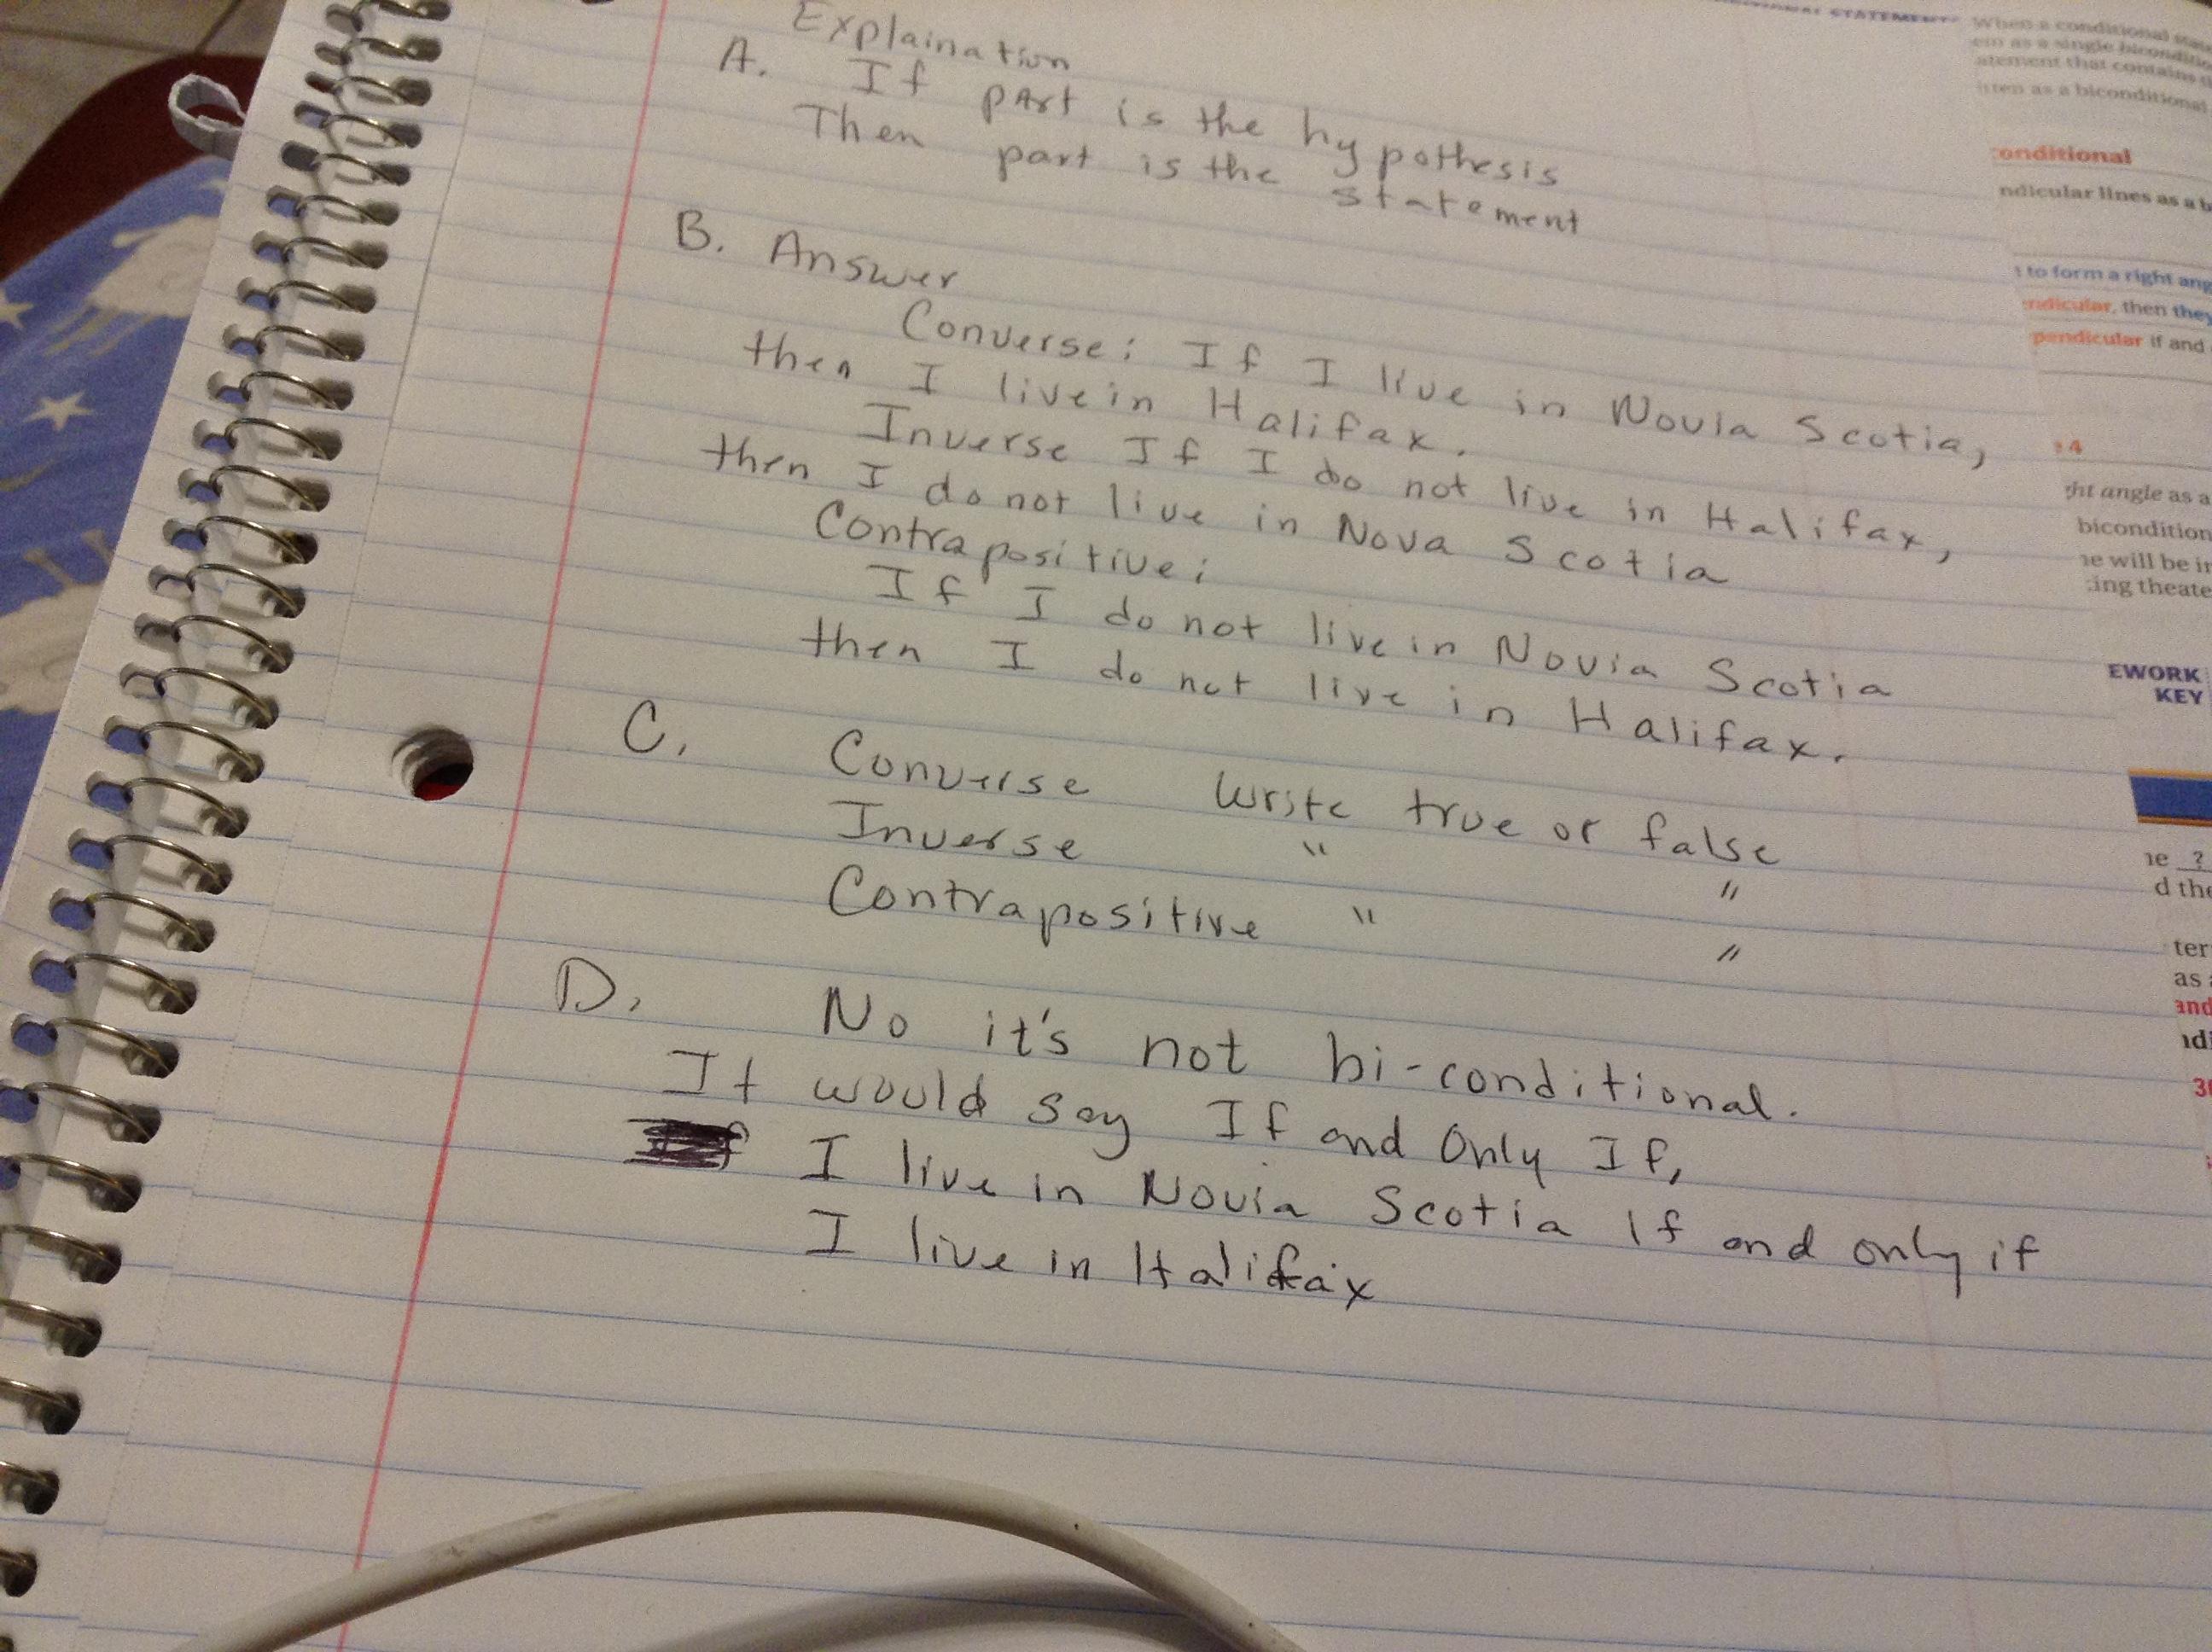 Explaination
A. If part is the hypothesis
Then part is the statement
B. Answer
Converse: If I live in Novia Scotia,
then I live in Halifax.
Inverse If I do not live in Halifax,
then I do not live in Nova Scotia
Contrapositive:
If I do not live in Novia Scotia
then I do not live in Halifax.
C. Converse Write true or false
Inverse " "
Contrapositive " "
D. No it's not bi-conditional.
It would say If and Only If,
I live in Novia Scotia If and only if
I live in Halifax
When a conditional
as a single
atement that contains
as a biconditional
onditional
ndicular lines as a b
to form a right ang
ndicular, then they
pendicular if and
4
ght angle as a
bicondition
e will be in
ing theate
EWORK
KEY
ne ?
d the
ter
as a
and